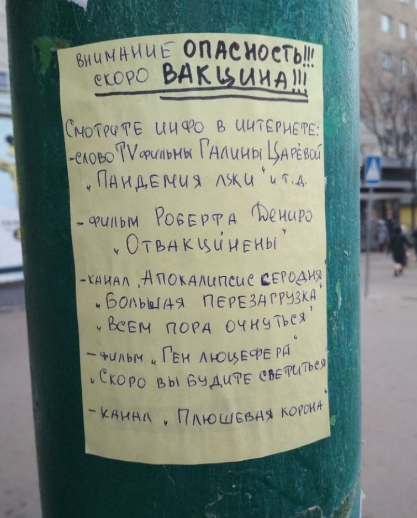 ВНИМАНИЕ ОПАСНОСТЬ!!!
СКОРО ВАКЦИНА!!!
СМОТРИТЕ ИНФО В ИНТЕРНЕТЕ:
-СЛОВО TV ФИЛЬМЫ ГАЛИНЫ ЦАРЁВОЙ
„ПАНДЕМИЯ ЛЖИ" И Т.Д.
- ФИЛЬМ РОБЕРТА ДЕНИРО
„ОТВАКЦИНЕНЫ"
-КАНАЛ „АПОКАЛИПСИС СЕГОДНЯ
„БОЛЬШАЯ ПЕРЕЗАГРУЗКА"
„ВСЕМ ПОРА ОЧНУТЬСЯ"
- ФИЛЬМ „ГЕН ЛЮЦЕФЕРА"
„СКОРО ВЫ БУДИТЕ СВЕТИТЬСЯ
- КАНАЛ „ПЛЮШЕВАЯ КОРОНА"